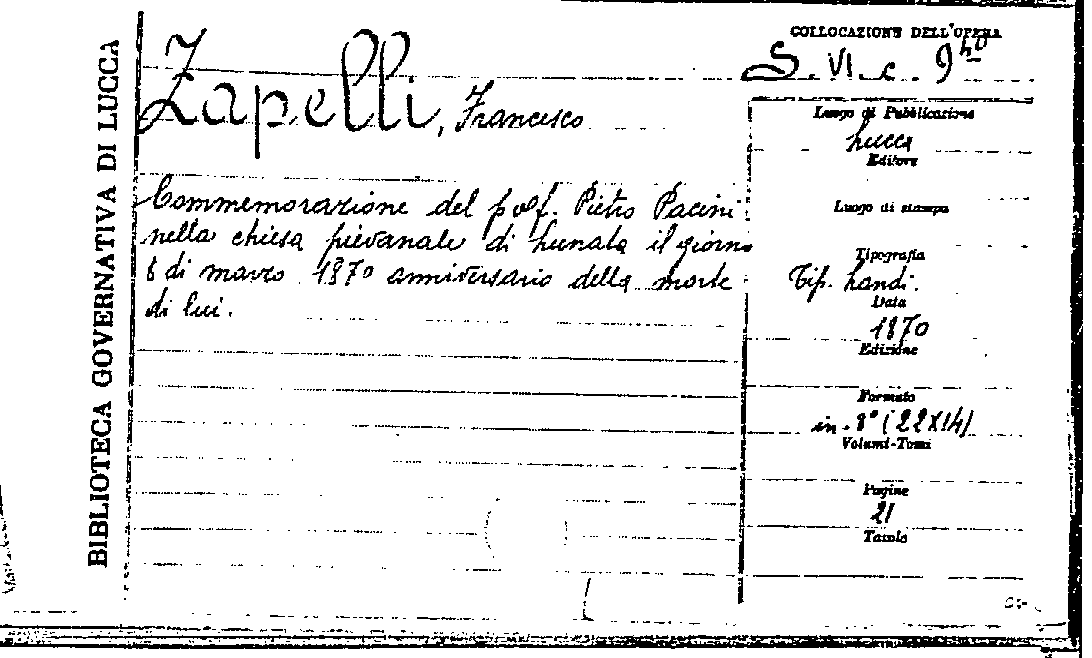 BIBLIOTECA GOVERNATIVA DI LUCCA
Zapelli, Francesco
Commemorazione del prof. Pietro Pacini
nella chiesa pievanale di Lunata il giorno
6 di marzo 1870 anniversario della morte
di lui.
COLLOCAZIONE DELL'OPERA
S. VI. c. 9
Luogo di Pubblicazione
Lucca
Editore
Luogo di stampa
Tipografia
Tip. Landi.
Data
1870
Edizione
Formato
in-8° (22X14)
Volumi-Tomi
Pagine
21
Tavole